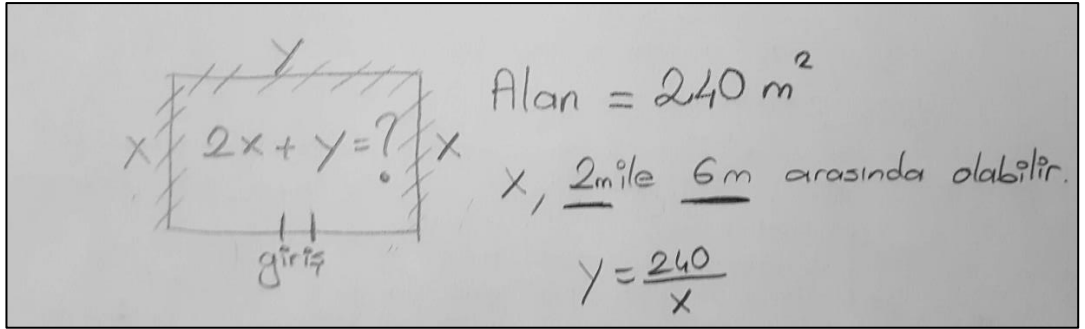 y
x 2x + y = ? x
giriş
Alan = 240 m²
x, 2m ile 6m arasında olabilir.
y = 240/x